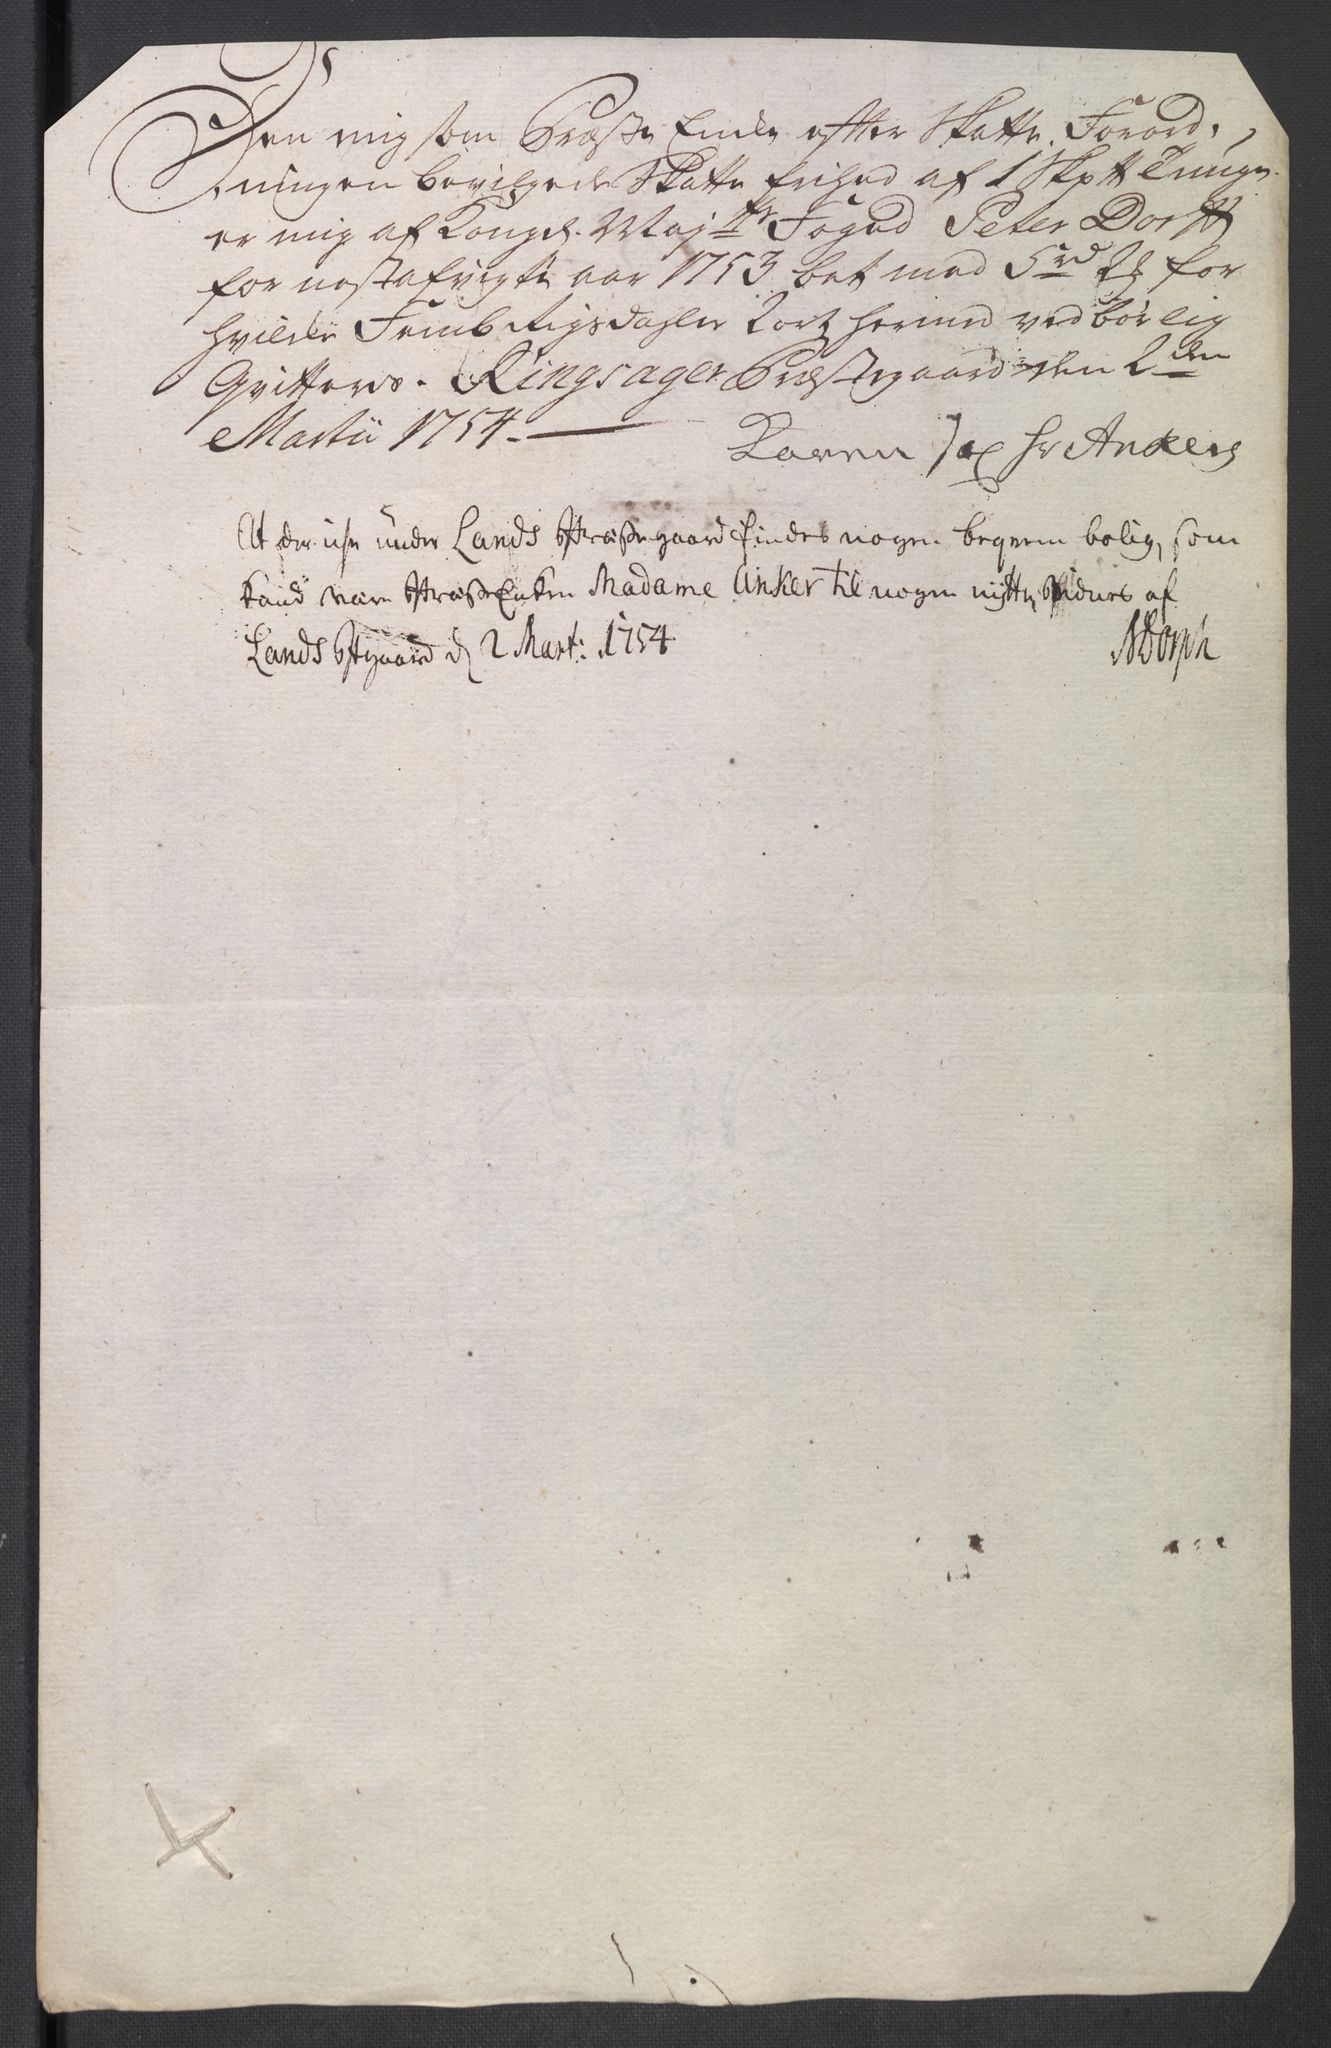 Den mig som Præste Encke efter Skatte Forord,
ningen bevilgede Skatte frihed af 1 Skpd Tunge
er mig af Kongel. Maj:ts Foged Peter Dorff
for nestafvigte aar 1753 bet med 5 rd for
hvilcke Femb Rigsdahler hermed vedbørlig
Qvitteres. Ringsager Præstegaard den 2den
Martii 1754.
Karen Sal Hr Ankers
At der icke under Lands Præstegaard findes nogen beqvem bolig, som
kand være PræsteEnken Madame Anker til nogen nytte, vidnes af
Lands Pstgaard d 2 Mart: 1754
NDorph